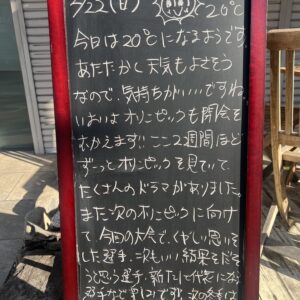 /22(日) 20℃
今日は20℃になるようです
あたたかく天気もよさそう
なので、気持ちがいいですね
いよいよオリンピックも閉会を
むかえます!!ここ2週間ほど
ずーっとオリンピックを見ていて
たくさんのドラマがありました。
また次のオリンピックに向け
て、今回の大会で、くやしい思いを
した選手、次もいい結果をだそ
うと思う選手、新たに代表になる
選手など